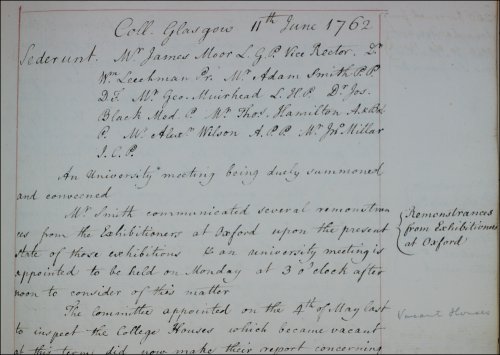 Coll. Glasgow 11th June 1762
Sederunt. Mr James Moor L.G.P Vice Rector. Dr
Wm Leechman Pr. Mr Adam Smith P.P
D.F. Mr Geo. Muirhead L.H.P. Dr Jos.
Black Med. P Mr Thos. Hamilton A & Bot
P. Mr Alexr Wilson A.P.P Mr Jno Millar
I.C.P.
An University meeting being duely summoned
and conveened
Mr Smith communicated several remonstran
ces from the Exhibitioners at Oxford upon the present
state of those exhibitions & an university meeting is
appointed to be held on Monday at 3 o'clock after
noon to consider of this matter
The Committee appointed on the 4th of May last
to inspect the College Houses which became vacant
at this term did now make their report concerning
Remonstrances
from Exhibitioners
at Oxford
Vacant Houses